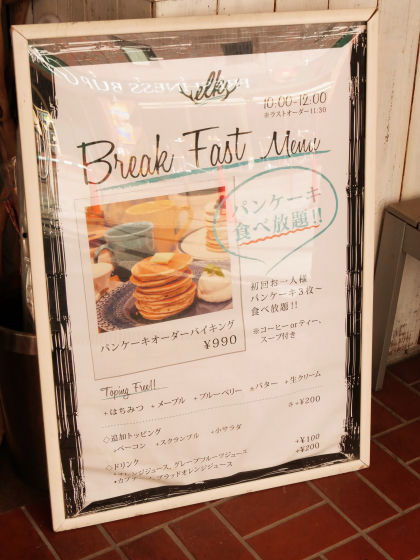 elks
10:00-12:00
※ラストオーダー11:30
Break Fast Menu
パンケーキ
食べ放題!!
初回お一人様
パンケーキ3枚〜
食べ放題!!
※コーヒーorティー、
スープ付き
パンケーキオーダーバイキング
¥990
Toping Free!!
+はちみつ +メープル +ブルーベリー +バター +生クリーム
◇追加トッピング 各+¥200
+ベーコン +スクランブル +小サラダ
◇ドリンク
+オレンジジュース、グレープフルーツジュース +¥100
+カプチーノ、ブラッドオレンジジュース +¥200